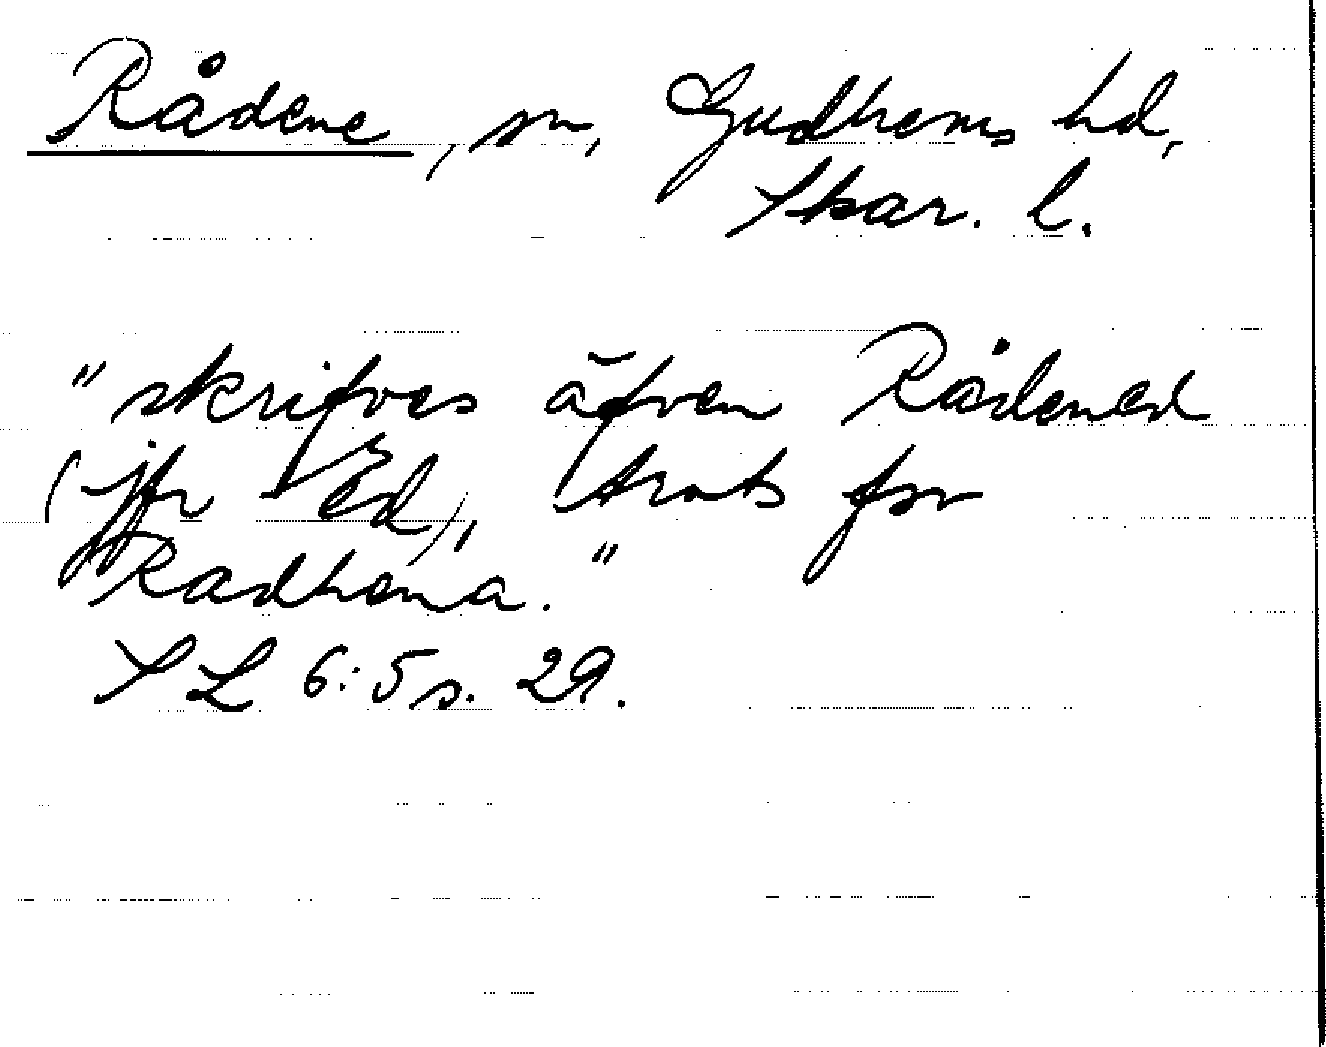 Rådene, sn, Gudhems hd,
Skar. l.
"skrifves äfven Rådened
(jfr Ed), trots fsv
Radhena."
SL 6:5 s. 29.